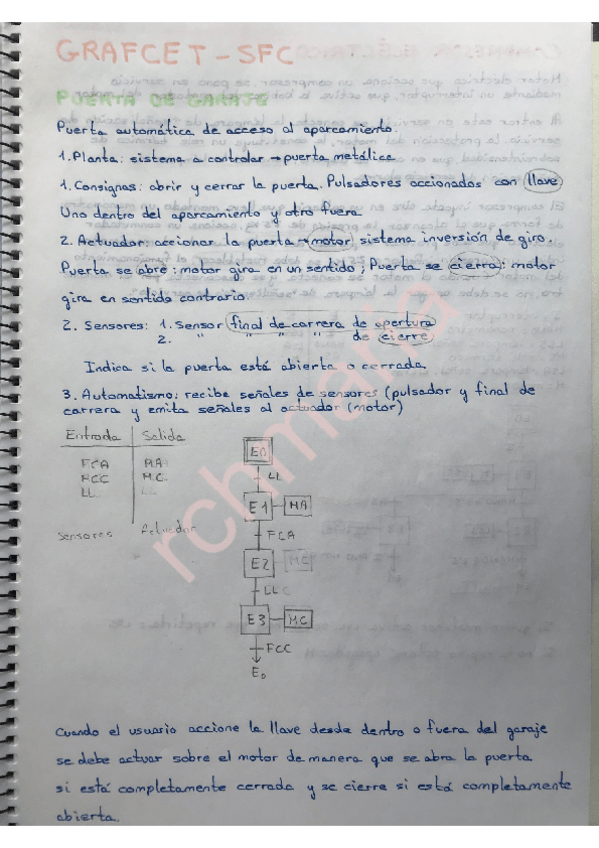 GRAFCET - SFC
PUERTA DE GARAJE
Puerta automática de acceso al aparcamiento.
1. Planta: sistema a controlar → puerta metálica
1. Consignas: abrir y cerrar la puerta. Pulsadores accionados con llave
Uno dentro del aparcamiento y otro fuera
2. Actuador: accionar la puerta → motor, sistema inversión de giro.
Puerta se abre: motor gira en un sentido; Puerta se cierra: motor
gira en sentido contrario.
2. Sensores: 1. Sensor final de carrera de apertura
2. " " " " de cierre
Indica si la puerta está abierta o cerrada
3. Automatismo: recibe señales de sensores (pulsador y final de
carrera y emita señales al actuador (motor)
Entrada Salida
FCA MA
FCC M.C.
LL LL
Sensores Actuador
E0
LL
E1 MA
FCA
E2 MC
LLC
E3 MC
FCC
E0
Cuando el usuario accione la llave desde dentro o fuera del garaje
se debe actuar sobre el motor de manera que se abra la puerta
si está completamente cerrada y se cierre si está completamente
abierta.
rchmaria